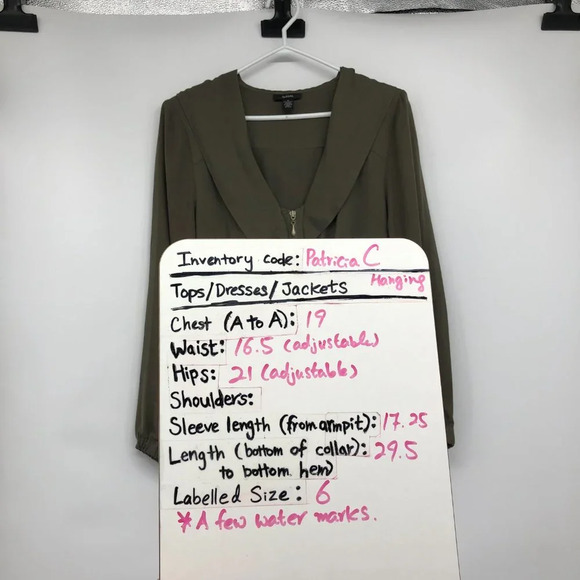 Inventory code: Patricia C
Hanging
Tops/Dresses/Jackets
Chest (A to A): 19
Waist: 16.5 (adjustable)
Hips: 21 (adjustable)
Shoulders:
Sleeve length (from armpit): 17.25
Length (bottom of collar): 29.5
to bottom hem)
Labelled Size: 6
* A few water marks.